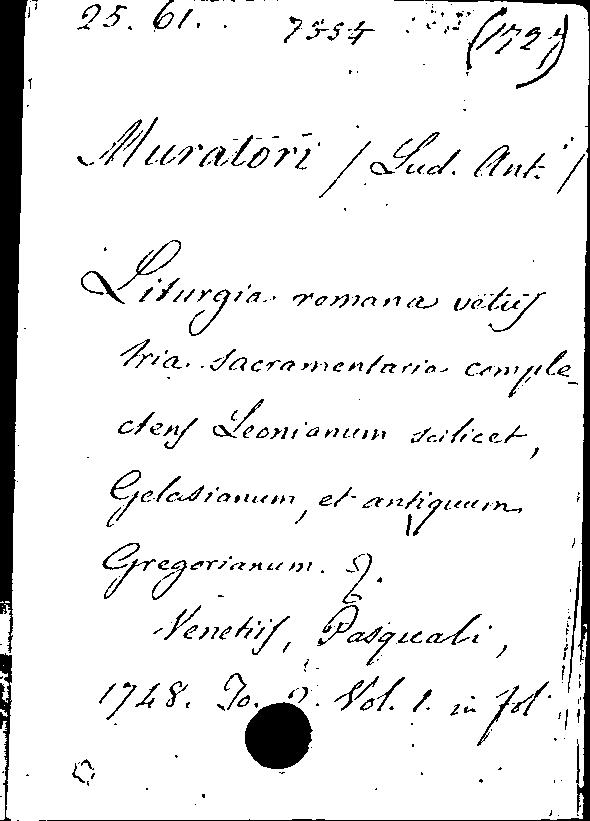 25. 61. 7554 (1727)
Muratori / Lud. Ant. /
Liturgia romana vetus
tria sacramentaria comple-
ctens Leonianum scilicet,
Gelasianum, et antiquum
Gregorianum.
Venetiis, Pasquali,
1748. To. 2. Vol. 1. in fol